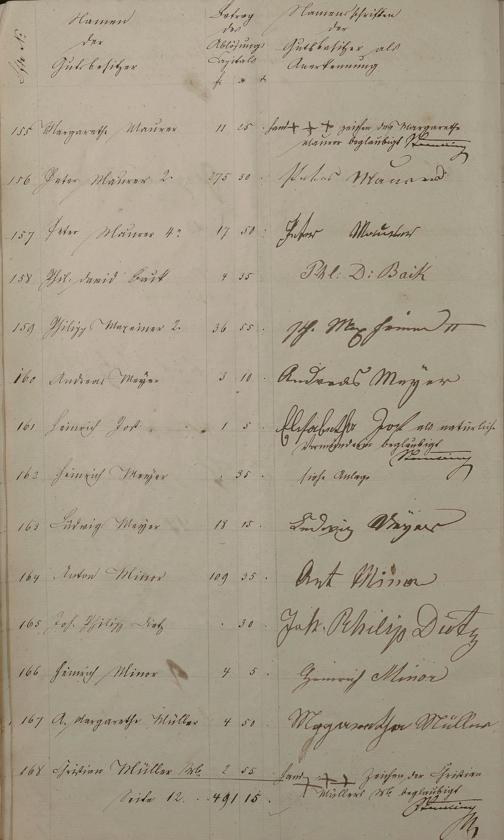 Lfde N°
Namen
der
Gutsbesitzer
Betrag
des
Ablösungs
Capitals
Namensschriften
der
Gutsbesitzer als
Anerkennung
155 Margarethe Maurer 11 25. Hand +++ zeichen des Margarethe
Maurer beglaubigt
156 Peter Maurer 2. 275 50. Peter Maurer
157 Peter Maurer 4r 17 50. Peter Maurer
158 Phil. David Bauk 4 35 Phl: D: Baik
159 Philipp Maxeiner 2. 36 55. Ph. Maxheimer II
160 Andreas Meyer 3 10. Andreas Meyer
161 Heinrich Jost 1 5. Elisabetha Jost als natürliche
Vormünderin beglaubigt
162 Heinrich Meyer . 35. siehe Anlage
163 Ludwig Meyer 18 15. Ludwig Meyer
164 Anton Minor 109 35. Ant Minor
165 Joh. Philipp Dietz . 30. Joh. Philip Dietz
166 Heinrich Minor 4 5. Heinrich Minor
167 A. Margarethe Müller 4 50. Magaretha Müller
168 Christian Müller Wb. 2 55 Hand +++ Zeichen der Christian
Müllers Wb. beglaubigt
Seite 12. 491 15.